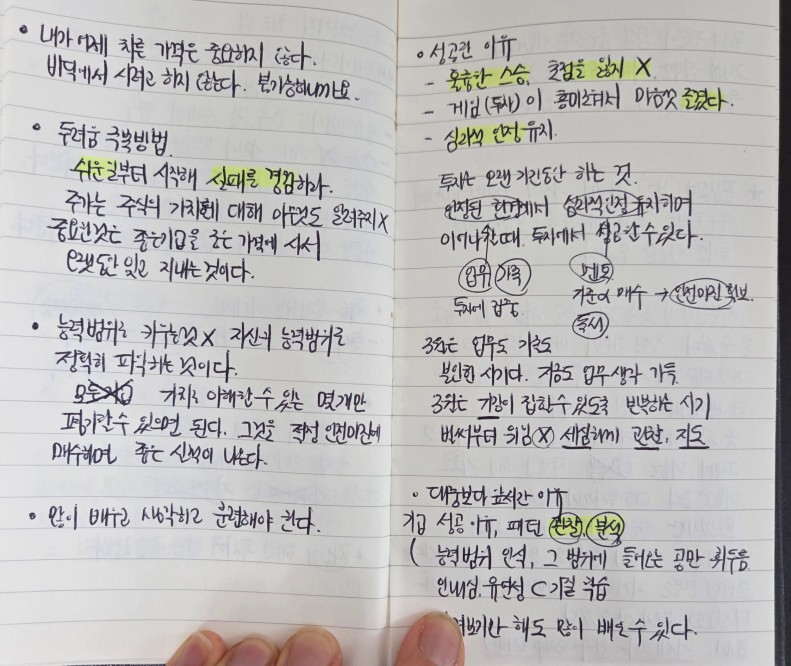 • 내가 어제 치른 가격은 중요하지 않다.
바닥에서 사려고 하지 않는다. 불가능하니까요.
• 두려움 극복방법
쉬운일부터 시작해 실패를 경감하라.
주가는 주식의 가치에 대해 아무것도 알려주지 X
중요한것은 좋은기업을 좋은 가격에 사서
오랫동안 잊고 지내는것이다.
• 능력범위를 키우는것 X 자신의 능력범위를
정확히 파악하는 것이다.
가치를 이해할 수 있는 몇개만
평가할수 있으면 된다. 그것을 적정 안전마진에
매수하면 좋은 실적이 나온다.
• 많이 배우고 생각하고 훈련해야 한다.
• 성공한 이유
- 훌륭한 스승, 초점을 잃지 X
- 게임(투자)이 흥미로워서 마음껏 즐겼다.
- 심리적 안정 유지.
투자는 오랜 기간동안 하는 것.
안정된 환경에서 심리적안정 유지하며
이어나갈때 투자에서 성공할수 있다.
업무 가족 멘토
투자에 집중 기준 매수 → 안전마진 확보.
독서
3월은 업무도 가정도
불안한 시기다. 지금도 업무 생각 가득.
3월은 가장 집중할 수 있도록 반복하는 시기
벌써부터 위임 X 세심하게 관찰, 지도
• 대중보다 앞서간 이유
기업 성공 이유, 패턴 관찰, 분석
( 능력범위 인식, 그 범위에 들어오는 공만 휘두름
인내심, 유연성 C 기질 학습
보기만 해도 많이 배울 수 있다.